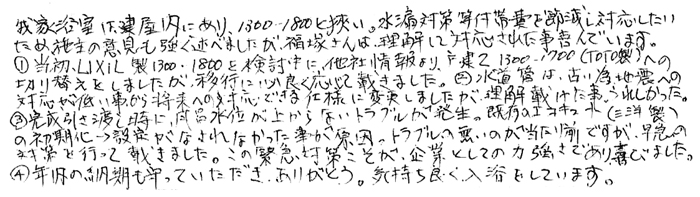 我家浴室は、建屋内にあり、1300-1800と狭い。水漏対策等付帯費を節減し対応したい
ため施主の意見も強く述べましたが、福塚さんは、理解して対応された事喜んでいます。
①当初、LIXIL製1300-1800を検討中に、他社情報より、戸建て1300-1700(TOTO製)への
切り替えをしましたが、移行に心良く応じて戴きました。②水道管は、古い為地震への
対応が低い事から将来への対応できる仕様に変更しましたが、理解戴けた事、うれしかった。
③完成引き渡し時に、風呂水位が上がらないトラブルが発生。既存のエコキュート(三洋製)
の初期化→設定がなされなかった事が原因。トラブルの無いのが当たり前ですが、早急の
対策を行って戴きました。この緊急対策こそが、企業としての力強さであり喜びました。
④年内の納期も守っていただき、ありがとう。気持ち良く入浴をしています。